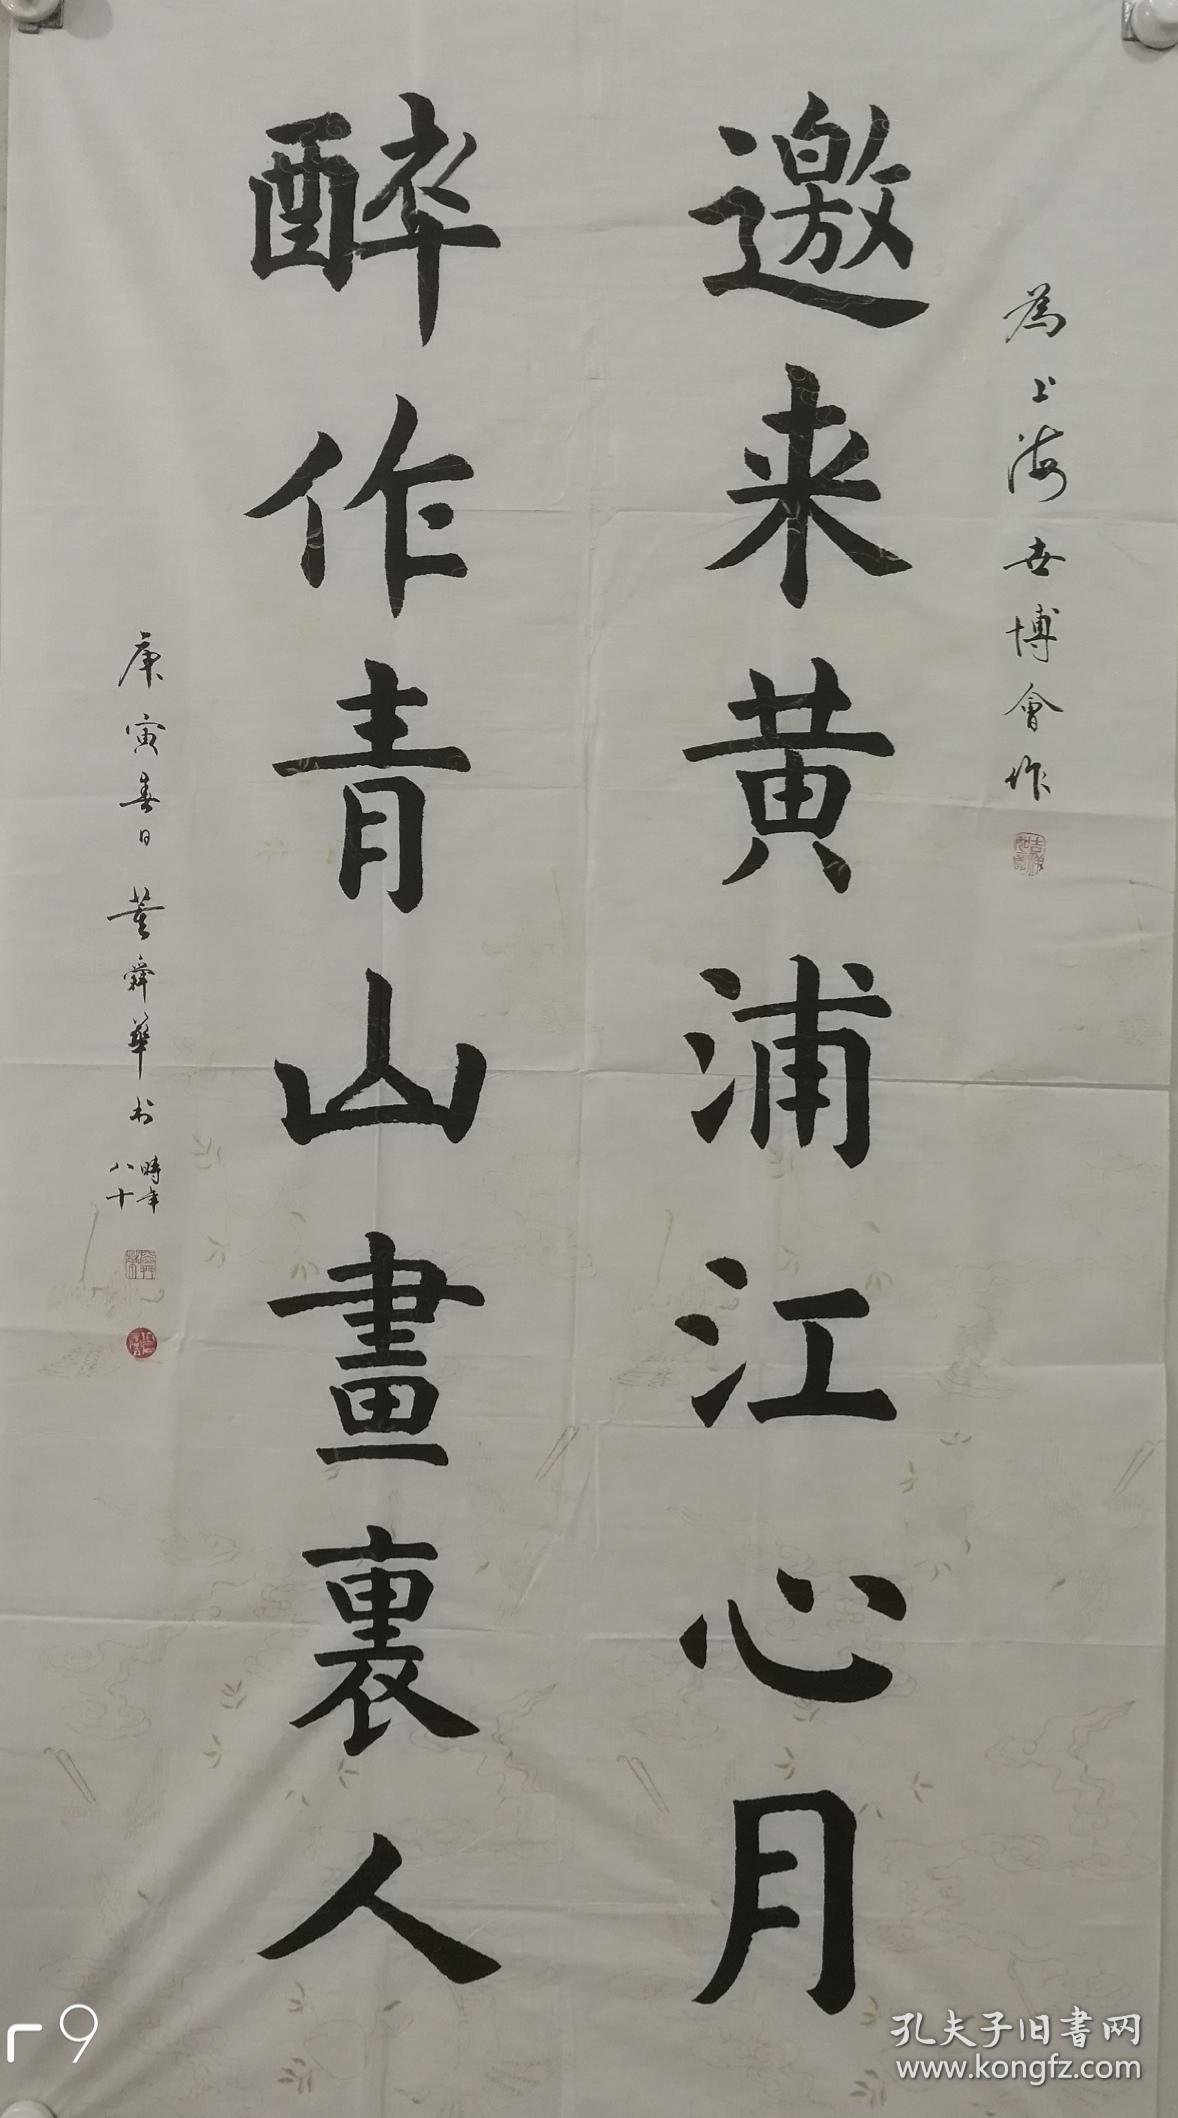 為上海世博會作
邀来黄浦江心月
醉作青山畫裏人
庚寅春日 董舜華书
時年
八十
孔夫子旧書网
www.kongfz.com
r9